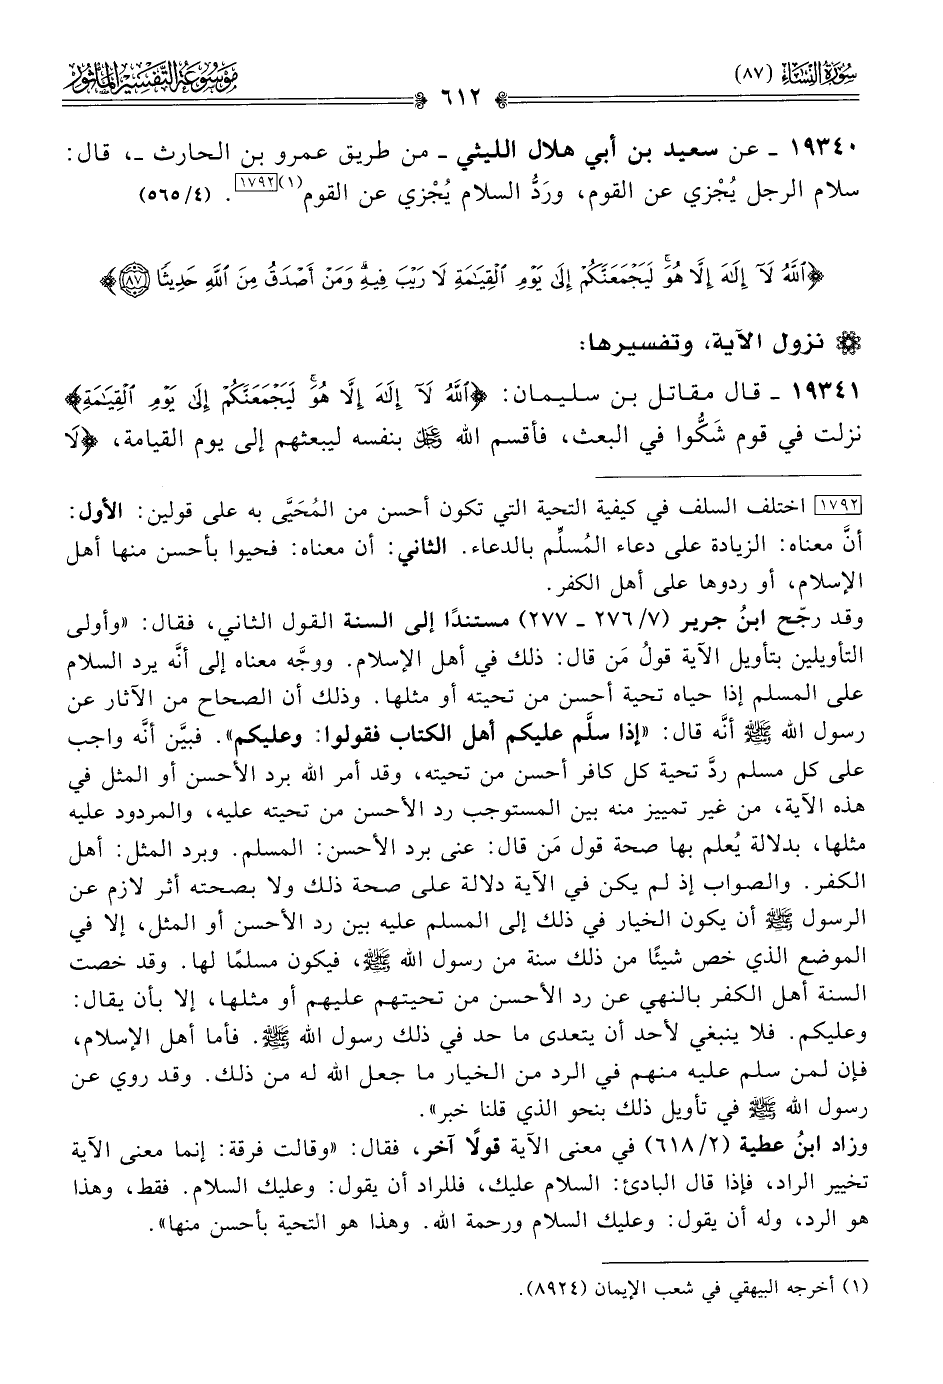 سُورَةُ النِّسَاءِ (٨٧)
٦١٢
مَوْسُوعَةُ التَّفْسِيرِ المَأْثُورِ
١٩٣٤٠ ـ عن سعيد بن أبي هلال الليثي ـ من طريق عمرو بن الحارث ـ، قال:
سلام الرجل يُجْزي عن القوم، وردُّ السلام يُجْزي عن القوم(١)[١٧٩٢]. (٤/ ٥٦٥)
﴿ٱللَّهُ لَآ إِلَٰهَ إِلَّا هُوَۚ لَيَجْمَعَنَّكُمْ إِلَىٰ يَوْمِ ٱلْقِيَٰمَةِ لَا رَيْبَ فِيهِۗ وَمَنْ أَصْدَقُ مِنَ ٱللَّهِ حَدِيثًا ٨٧﴾
نزول الآية، وتفسيرها:
١٩٣٤١ ـ قال مقاتل بن سليمان: ﴿ٱللَّهُ لَآ إِلَٰهَ إِلَّا هُوَۚ لَيَجْمَعَنَّكُمْ إِلَىٰ يَوْمِ ٱلْقِيَٰمَةِ﴾
نزلت في قوم شَكُّوا في البعث، فأقسم الله ﷻ بنفسه ليبعثهم إلى يوم القيامة، ﴿لَا
[١٧٩٢] اختلف السلف في كيفية التحية التي تكون أحسن من المُحَيَّى به على قولين: الأول:
أنَّ معناه: الزيادة على دعاء المُسلِّم بالدعاء. الثاني: أن معناه: فحيوا بأحسن منها أهل
الإسلام، أو ردوها على أهل الكفر.
وقد رجّح ابنُ جرير (٧/ ٢٧٦ ـ ٢٧٧) مستندًا إلى السنة القول الثاني، فقال: «وأولى
التأويلين بتأويل الآية قولُ مَن قال: ذلك في أهل الإسلام. ووجَّه معناه إلى أنَّه يرد السلام
على المسلم إذا حياه تحية أحسن من تحيته أو مثلها. وذلك أن الصحاح من الآثار عن
رسول الله ﷺ أنَّه قال: «إذا سلَّم عليكم أهل الكتاب فقولوا: وعليكم». فبيَّن أنَّه واجب
على كل مسلم ردَّ تحية كل كافر أحسن من تحيته، وقد أمر الله برد الأحسن أو المثل في
هذه الآية، من غير تمييز منه بين المستوجب رد الأحسن من تحيته عليه، والمردود عليه
مثلها، بدلالة يُعلم بها صحة قول مَن قال: عنى برد الأحسن: المسلم. وبرد المثل: أهل
الكفر. والصواب إذ لم يكن في الآية دلالة على صحة ذلك ولا بصحته أثر لازم عن
الرسول ﷺ أن يكون الخيار في ذلك إلى المسلم عليه بين رد الأحسن أو المثل، إلا في
الموضع الذي خص شيئًا من ذلك سنة من رسول الله ﷺ، فيكون مسلمًا لها. وقد خصت
السنة أهل الكفر بالنهي عن رد الأحسن من تحيتهم عليهم أو مثلها، إلا بأن يقال:
وعليكم. فلا ينبغي لأحد أن يتعدى ما حد في ذلك رسول الله ﷺ. فأما أهل الإسلام،
فإن لمن سلم عليه منهم في الرد من الخيار ما جعل الله له من ذلك. وقد روي عن
رسول الله ﷺ في تأويل ذلك بنحو الذي قلنا خبر».
وزاد ابنُ عطية (٢/ ٦١٨) في معنى الآية قولًا آخر، فقال: «وقالت فرقة: إنما معنى الآية
تخيير الراد، فإذا قال البادئ: السلام عليك، فللراد أن يقول: وعليك السلام. فقط، وهذا
هو الرد، وله أن يقول: وعليك السلام ورحمة الله. وهذا هو التحية بأحسن منها».
(١) أخرجه البيهقي في شعب الإيمان (٨٩٢٤).